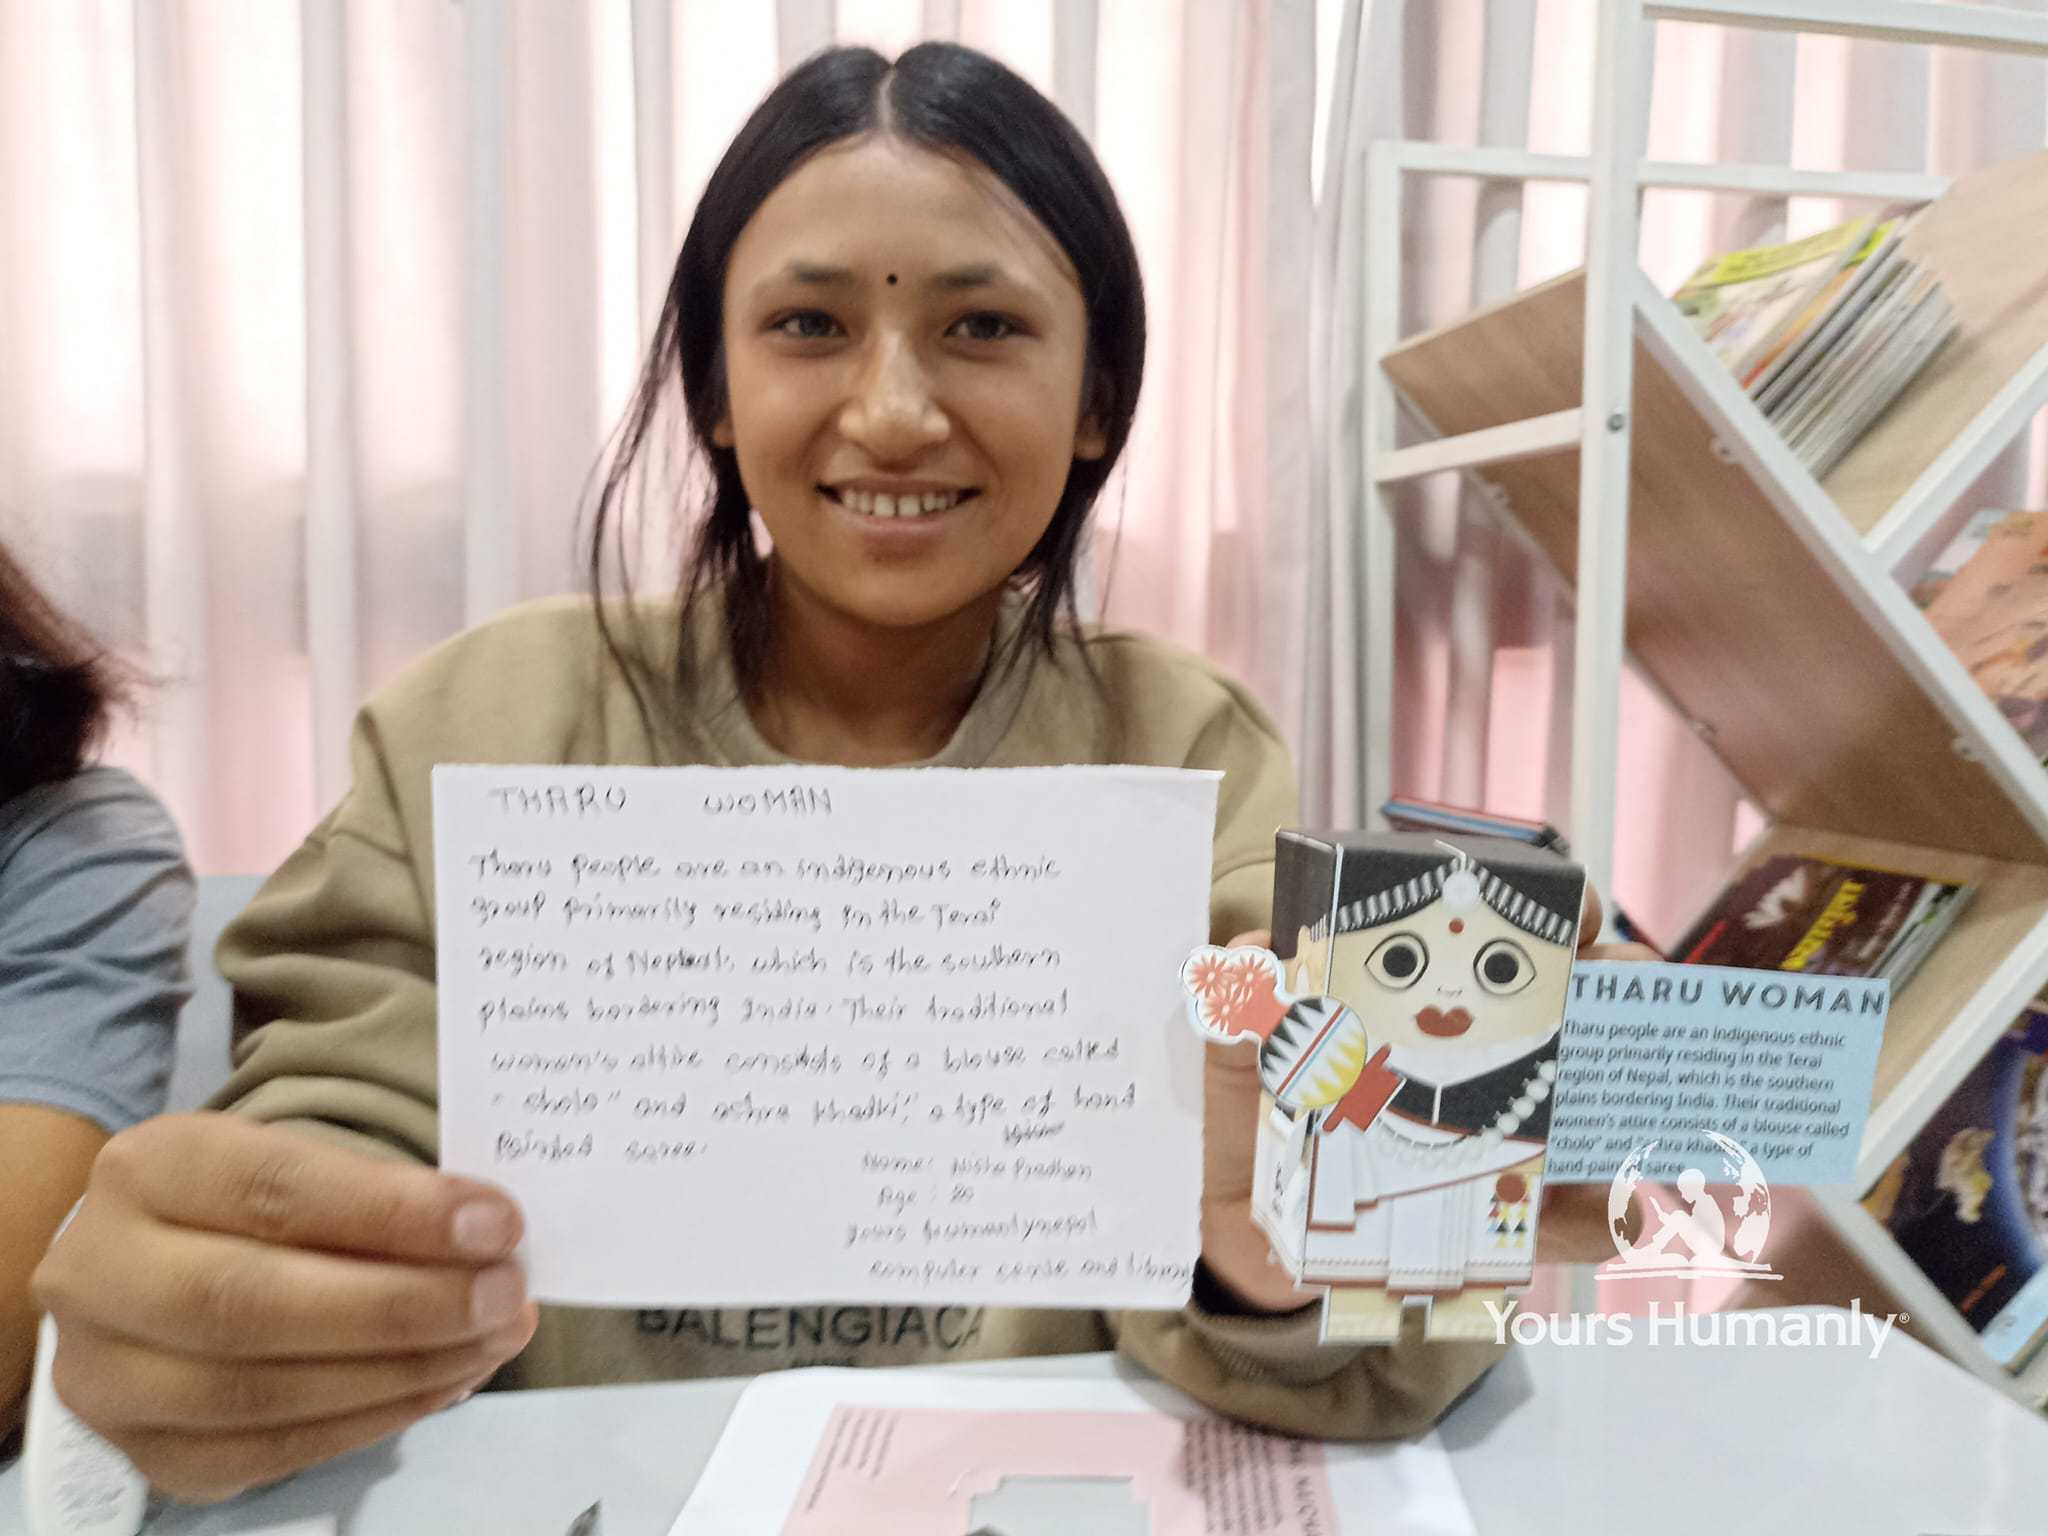 THARU WOMAN
Tharu people are an indigenous ethnic
group primarily residing in the Terai
region of Nepal, which is the southern
plains bordering India. Their traditional
woman's attire consists of a blouse called
"cholo" and astra khadki," a type of hand
Painted saree.
Name: Nisha Pradhan
Age: 20
yours humanlynepal
computer and library
THARU WOMAN
Tharu people are an indigenous ethnic
group primarily residing in the Terai
region of Nepal, which is the southern
plains bordering India. Their traditional
women's attire consists of a blouse called
"cholo" and a type of
hand-painted saree
BALENGIACA
Yours Humanly®